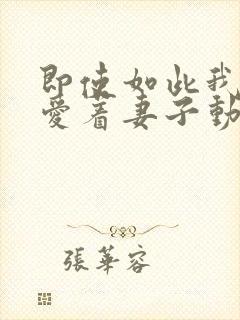 即使如此我
愛着妻子動
張華容